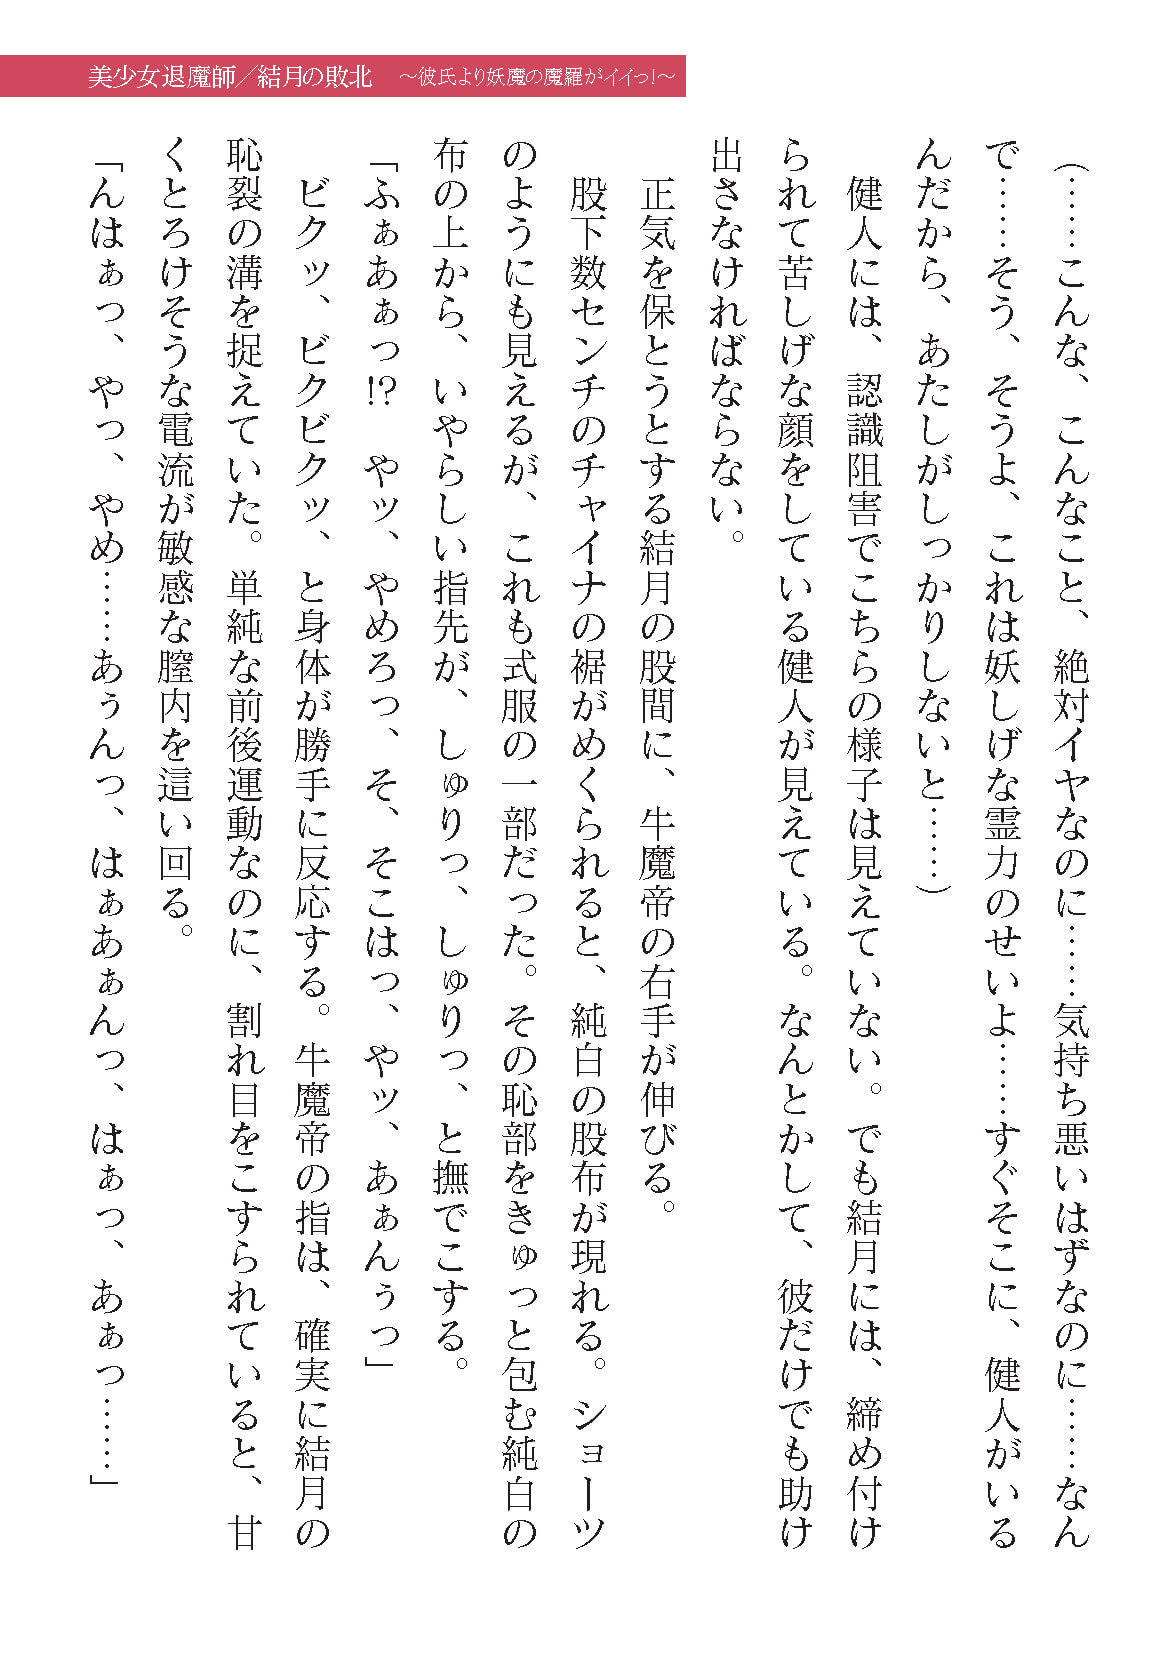 美少女退魔師／結月の敗北　～彼氏より妖魔の魔羅がイイっ！～
（……こんな、こんなこと、絶対イヤなのに……気持ち悪いはずなのに……なん
で……そう、そうよ、これは妖しげな霊力のせいよ……すぐそこに、健人がいる
んだから、あたしがしっかりしないと……）
　健人には、認識阻害でこちらの様子は見えていない。でも結月には、締め付け
られて苦しげな顔をしている健人が見えている。なんとかして、彼だけでも助け
出さなければならない。
　正気を保とうとする結月の股間に、牛魔帝の右手が伸びる。
　股下数センチのチャイナの裾がめくられると、純白の股布が現れる。ショーツ
のようにも見えるが、これも式服の一部だった。その恥部をきゅっと包む純白の
布の上から、いやらしい指先が、しゅりっ、しゅりっ、と撫でこする。
「ふぁあぁっ!?　やッ、やめろっ、そ、そこはっ、やッ、あぁんぅっ」
　ビクッ、ビクビクッ、と身体が勝手に反応する。牛魔帝の指は、確実に結月の
恥裂の溝を捉えていた。単純な前後運動なのに、割れ目をこすられていると、甘
くとろけそうな電流が敏感な膣内を這い回る。
「んはぁっ、やっ、やめ……あぅんっ、はぁあぁんっ、はぁっ、あぁっ……」